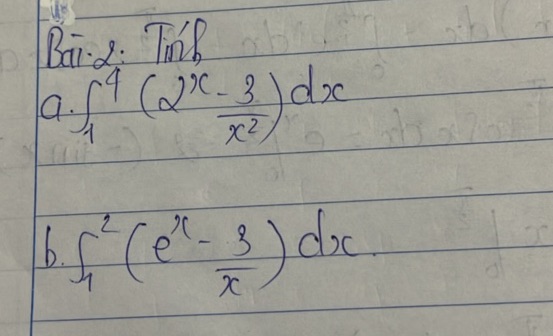 Bài 2: Tính
a. ∫₁⁴ (2ˣ - 3/x²) dx
b. ∫₁² (eˣ - 3/x) dx.